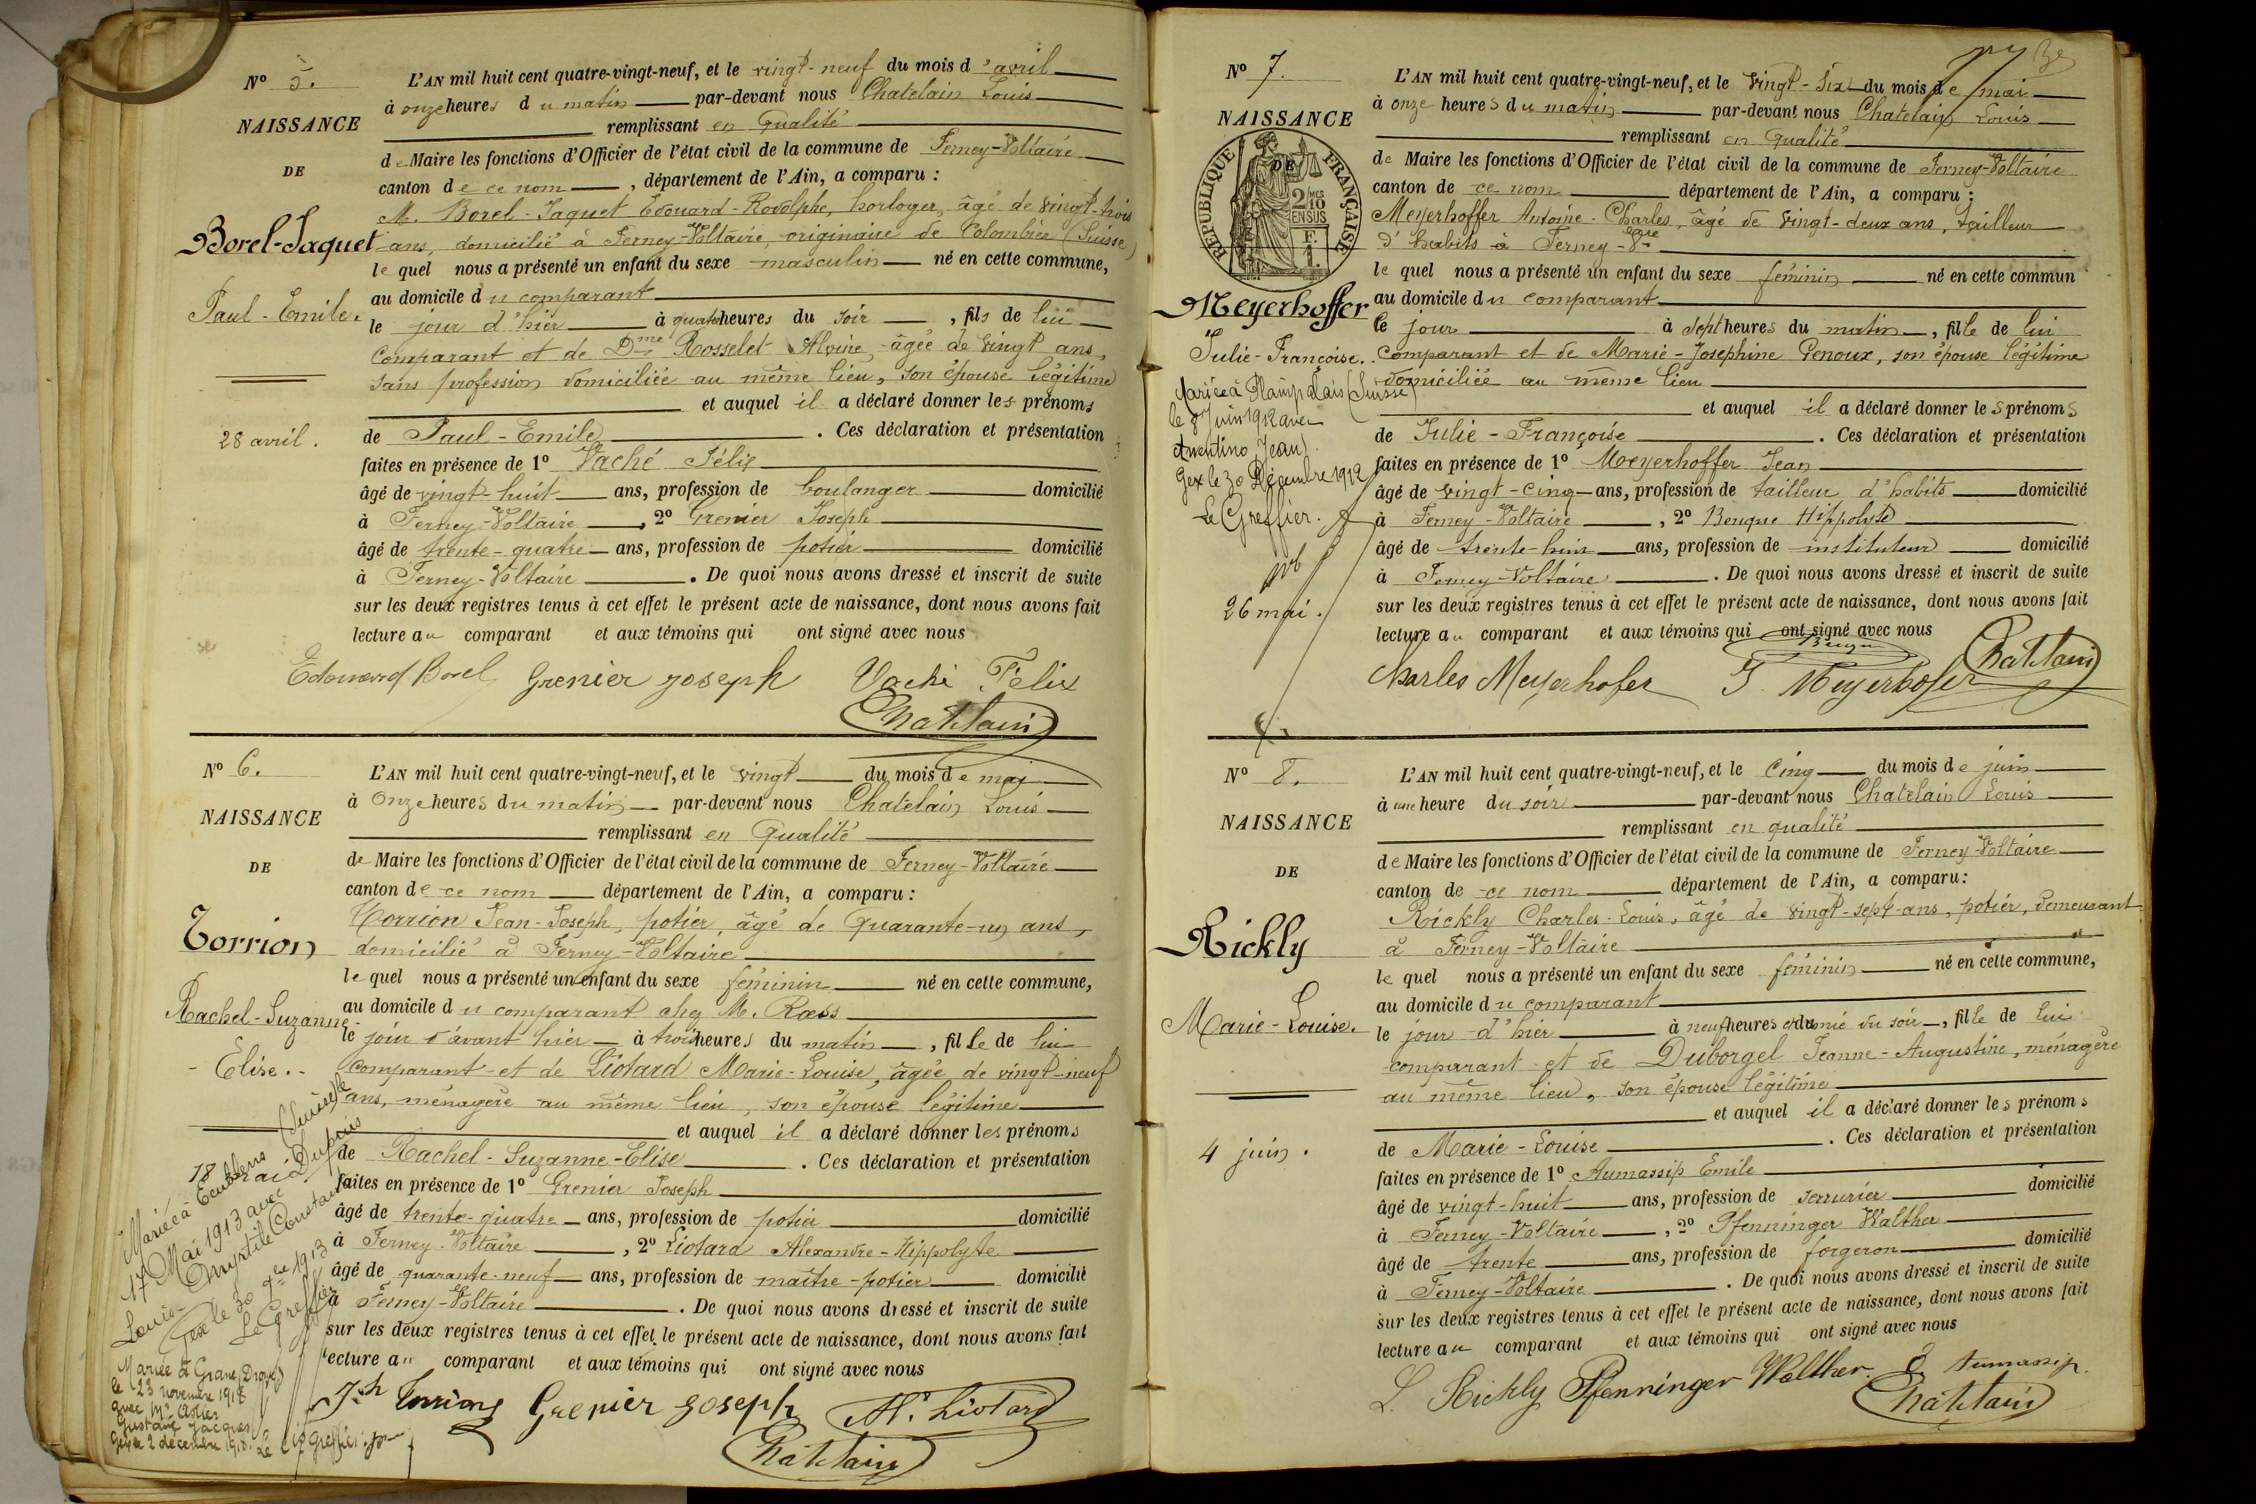 N° 5.
NAISSANCE
DE
Borel-Jaquet
Paul-Emile.
28 avril.
L'AN mil huit cent quatre-vingt-neuf, et le vingt-neuf du mois d'avril
à onze heures du matin par-devant nous Chatelain Louis
remplissant en qualité
de Maire les fonctions d'Officier de l'état civil de la commune de Ferney-Voltaire
canton de ce nom, département de l'Ain, a comparu :
M. Borel-Jaquet Edouard-Rodolphe, horloger, âgé de vingt-trois
ans, domicilié à Ferney-Voltaire, originaire de Colombier (Suisse)
lequel nous a présenté un enfant du sexe masculin né en cette commune,
au domicile du comparant
le jour d'hier à quatre heures du soir, fils de lui
comparant et de Dme Rosselet Alvine, âgée de vingt ans,
sans profession domiciliée au même lieu, son épouse légitime
et auquel il a déclaré donner les prénoms
de Paul-Emile. Ces déclaration et présentation
faites en présence de 1° Vaché Félix
âgé de vingt-huit ans, profession de boulanger domicilié
à Ferney-Voltaire, 2° Grenier Joseph
âgé de trente-quatre ans, profession de potier domicilié
à Ferney-Voltaire. De quoi nous avons dressé et inscrit de suite
sur les deux registres tenus à cet effet le présent acte de naissance, dont nous avons fait
lecture au comparant et aux témoins qui ont signé avec nous
Edouard Borel Grenier Joseph Vaché Félix
Chatelain
N° 6.
NAISSANCE
DE
Torrion
Rachel-Suzanne-
Elise.
18 mai
Mariée à Ecublens (Suisse) le
17 Mai 1913 avec Dupuis
Louis-Myrtile Constant
Gex le 30 1913
Le Greffier
Mariée à Grane (Drôme)
le 23 novembre 1918
avec Mr Astier
Gustave Jacques
Gex le 2 décembre 1918. Le Greffier
L'AN mil huit cent quatre-vingt-neuf, et le vingt du mois de mai
à onze heures du matin par-devant nous Chatelain Louis
remplissant en qualité
de Maire les fonctions d'Officier de l'état civil de la commune de Ferney-Voltaire
canton de ce nom département de l'Ain, a comparu :
Torrion Jean-Joseph, potier, âgé de quarante-un ans,
domicilié à Ferney-Voltaire
lequel nous a présenté un enfant du sexe féminin né en cette commune,
au domicile du comparant chez M. Rœss
le jour d'avant hier à trois heures du matin, fille de lui
comparant et de Liotard Marie-Louise, âgée de vingt-neuf
ans, ménagère au même lieu, son épouse légitime
et auquel il a déclaré donner les prénoms
de Rachel-Suzanne-Elise. Ces déclaration et présentation
faites en présence de 1° Grenier Joseph
âgé de trente-quatre ans, profession de potier domicilié
à Ferney-Voltaire, 2° Liotard Alexandre-Hippolyte
âgé de quarante-neuf ans, profession de maître-potier domicilié
à Ferney-Voltaire. De quoi nous avons dressé et inscrit de suite
sur les deux registres tenus à cet effet le présent acte de naissance, dont nous avons fait
lecture au comparant et aux témoins qui ont signé avec nous
Jh Torrion Grenier Joseph Liotard
Chatelain
N° 7.
NAISSANCE
DE
RÉPUBLIQUE FRANÇAISE
2/10 EN SUS
Meyerhoffer
Julie-Françoise.
Mariée à Plainpalais (Suisse)
le 8 Juin 1912 avec
Jean
Gex le 30 Décembre 1912
Le Greffier.
26 mai.
L'AN mil huit cent quatre-vingt-neuf, et le vingt-six du mois de mai
à onze heures du matin par-devant nous Chatelain Louis
remplissant en qualité
de Maire les fonctions d'Officier de l'état civil de la commune de Ferney-Voltaire
canton de ce nom département de l'Ain, a comparu :
Meyerhoffer Antoine-Charles, âgé de vingt-deux ans, tailleur
d'habits à Ferney-Vre
lequel nous a présenté un enfant du sexe féminin né en cette commun
au domicile du comparant
le jour à sept heures du matin, fille de lui
comparant et de Marie-Josephine Genoux, son épouse légitime
domiciliée au même lieu
et auquel il a déclaré donner les prénoms
de Julie-Françoise. Ces déclaration et présentation
faites en présence de 1° Meyerhoffer Jean
âgé de vingt-cinq ans, profession de tailleur d'habits domicilié
à Ferney-Voltaire, 2° Benque Hippolyte
âgé de trente-huit ans, profession de instituteur domicilié
à Ferney-Voltaire. De quoi nous avons dressé et inscrit de suite
sur les deux registres tenus à cet effet le présent acte de naissance, dont nous avons fait
lecture au comparant et aux témoins qui ont signé avec nous
Benque
Charles Meyerhofer J. Meyerhofer Chatelain
N° 8.
NAISSANCE
DE
Rickly
Marie-Louise.
4 juin.
L'AN mil huit cent quatre-vingt-neuf, et le cinq du mois de juin
à une heure du soir par-devant nous Chatelain Louis
remplissant en qualité
de Maire les fonctions d'Officier de l'état civil de la commune de Ferney-Voltaire
canton de ce nom département de l'Ain, a comparu :
Rickly Charles-Louis, âgé de vingt-sept ans, potier, demeurant
à Ferney-Voltaire
lequel nous a présenté un enfant du sexe féminin né en cette commune,
au domicile du comparant
le jour d'hier à neuf heures et demie du soir, fille de lui
comparant et de Duborgel Jeanne-Augustine, ménagère
au même lieu, son épouse légitime
et auquel il a déclaré donner les prénoms
de Marie-Louise. Ces déclaration et présentation
faites en présence de 1° Aumassip Emile
âgé de vingt-huit ans, profession de serrurier domicilié
à Ferney-Voltaire, 2° Pfenninger Walther
âgé de trente ans, profession de forgeron domicilié
à Ferney-Voltaire. De quoi nous avons dressé et inscrit de suite
sur les deux registres tenus à cet effet le présent acte de naissance, dont nous avons fait
lecture au comparant et aux témoins qui ont signé avec nous
L. Rickly Pfenninger Walther. E Aumassip.
Chatelain